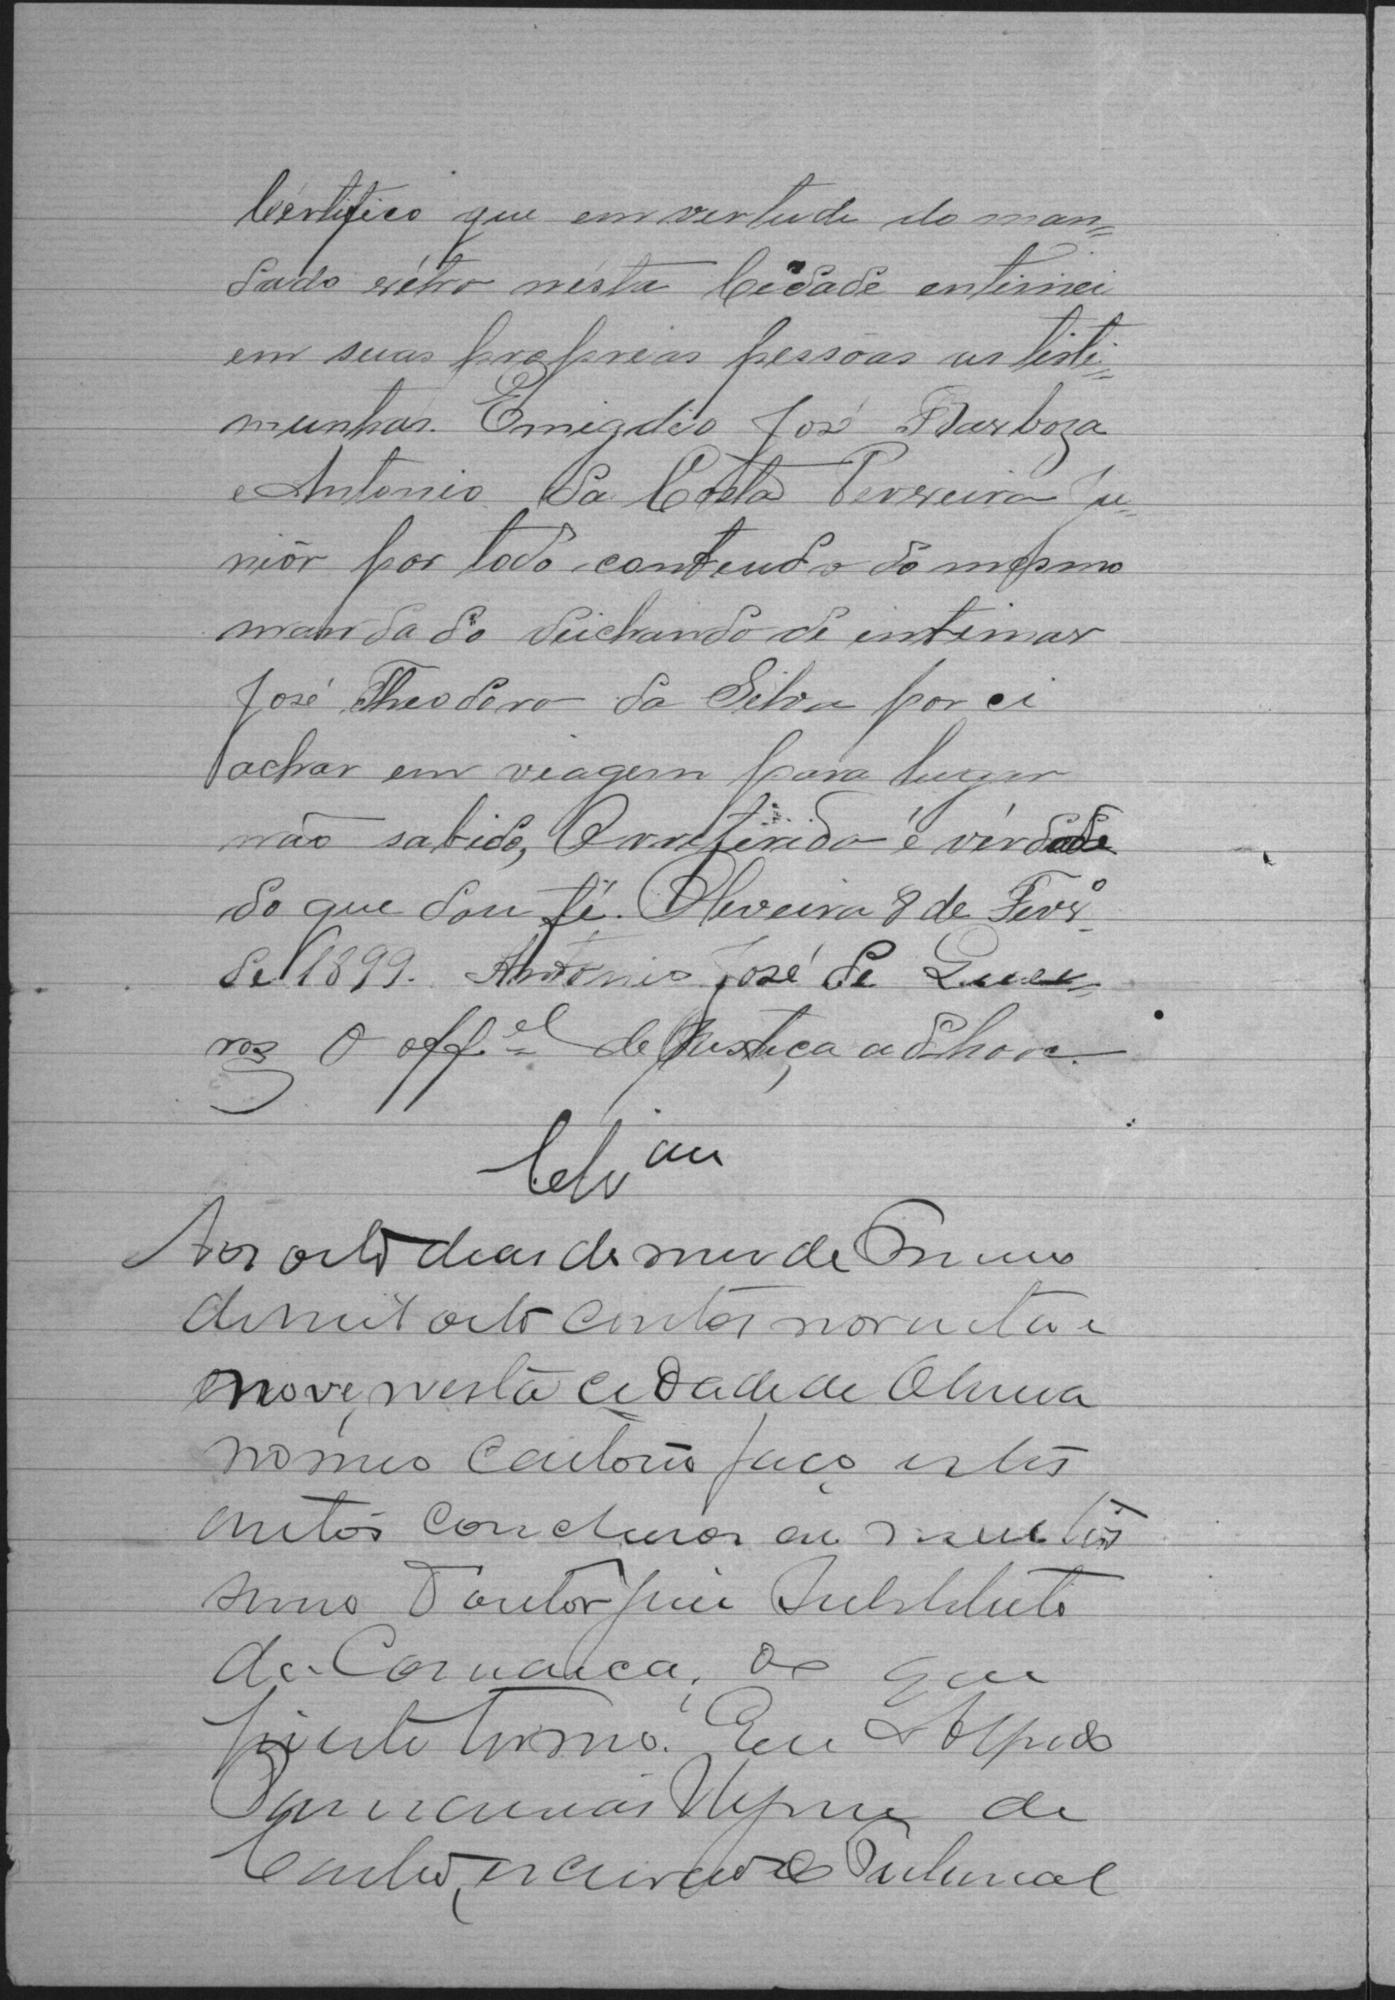 Certifico que em vertude do man=
dado rétro nésta Cidade entimei
em suas propreias pessôas as testi=
munhas. Emigdio José Barboza
e Antonio da Costa Perreira Ju=
niôr por todo contendo do mesmo
mandado deichando de intimar
José Theodoro da Silva por ci
achar em viagem para lugar
não sabido, O referido é vérdade
do que dou fé. Oliveira 8 de Fevrº
de 1899. Antonio José de Quei=
roz O offel de Justiça adhoc.
Clsam
Aos oito dias do mes de
de mil oito centos noventa e
nove, nesta cidade de Oliveira
no meo Cartorio faço estes
autos conclusos ao
simo Doutor Juiz Substituto
da Comarca, do que
este termo. Eu Alfredo
de
Castro, escrivão do Tribunal